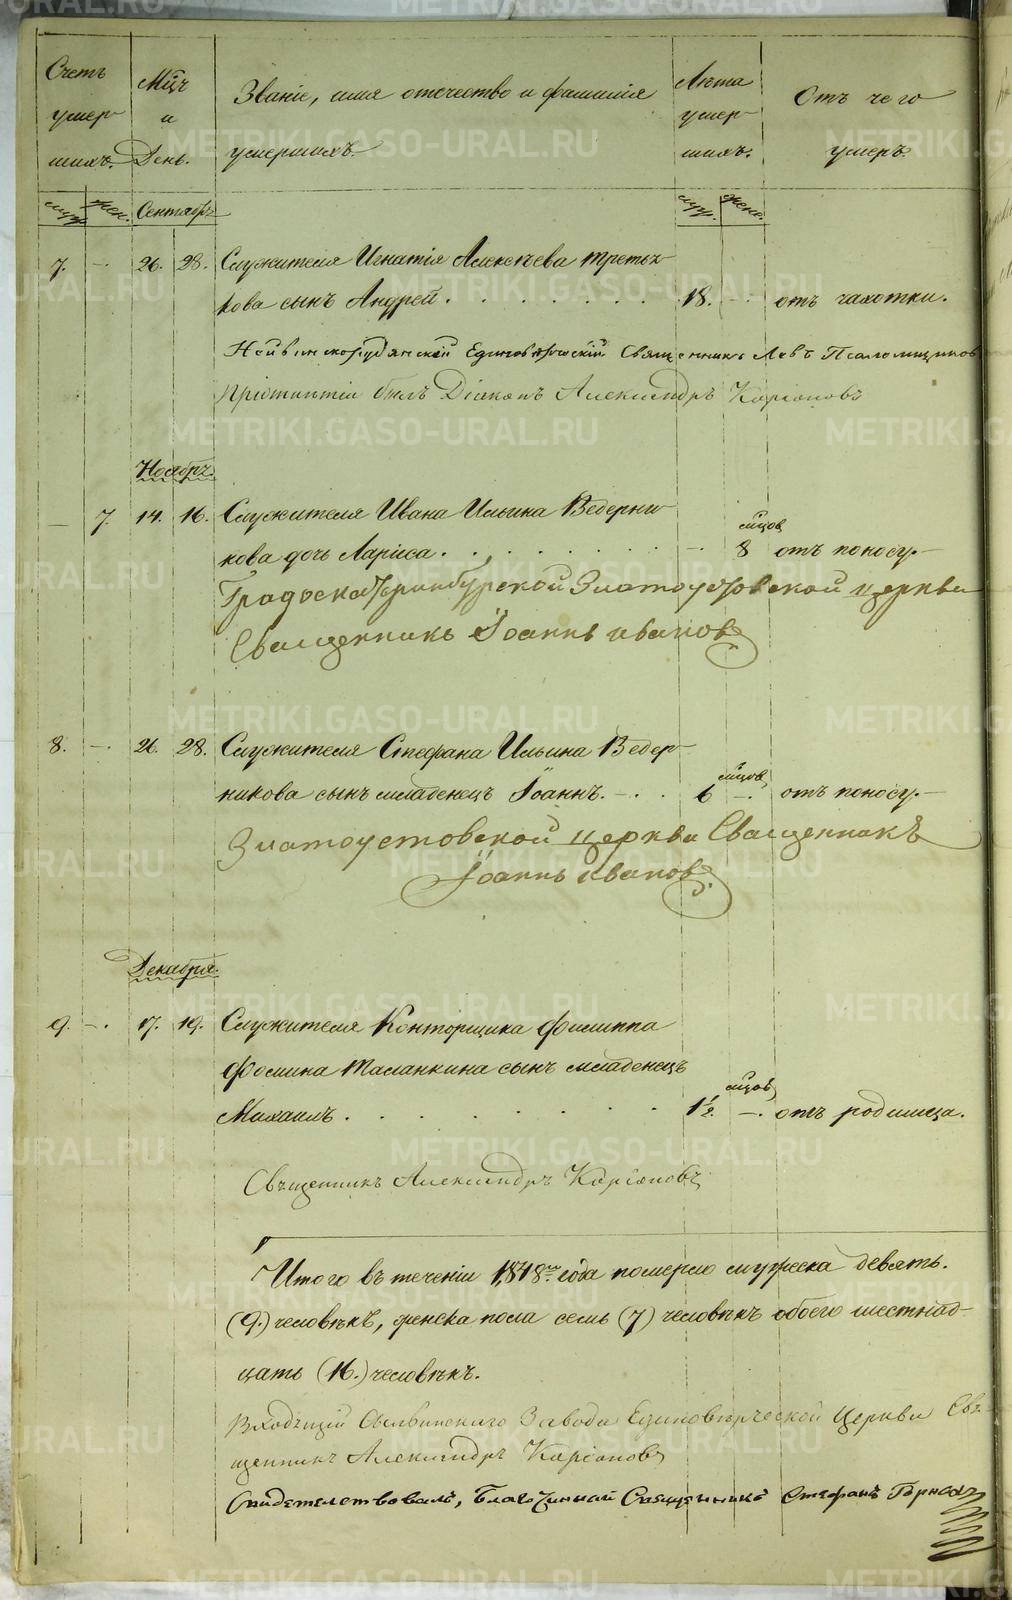 Счетъ умер- шихъ.
Мцъ и День.
Званіе, имя отечество и фамилія умершихъ.
Лѣта умер- шихъ.
Отъ чего умеръ.
муж. жен. Сентябрь муж. женс.
7. - 26. 28. Служителя Игнатія Алексѣева Третья-
кова сынъ Андрей. 18. - отъ чахотки.
Нейвинскорудянскій Единовѣрческій Священникъ Левъ Псаломщиковъ
При отпѣтіи былъ Діаконъ Александръ Каріоновъ
Ноябрь.
- 7. 14. 16. Служителя Ивана Ильина Ведерни-
кова дочь Лариса. - мцов 8 отъ поносу. -
Градоекатеринбургской Златоустовской церкви
Священникъ Іоаннъ Ивановъ
8. - 26. 28. Служителя Стефана Ильина Ведер-
никова сынъ младенецъ Іоаннъ. - 6 мцов - отъ поносу. -
Златоустовской церкви Священникъ
Іоаннъ Ивановъ.
Декабря.
9. - 17. 19. Служителя Конторщика Филиппа
Фомина Маланкина сынъ младенецъ
Михаилъ. 1½ мцов - отъ родимца.
Священникъ Александръ Каріоновъ
Итого въ теченіи 1848го года померло мужеска девять.
(9.) человѣкъ, женска пола семь (7) человѣкъ обоего шестнад-
цать (16.) человѣкъ.
Входящій Сылвинскаго Завода Единовѣрческой Церкви Свя-
щенникъ Александръ Каріоновъ
Свидетелствовалъ, Благочинный Священникъ Стефанъ
METRIKI.GASO-URAL.RU